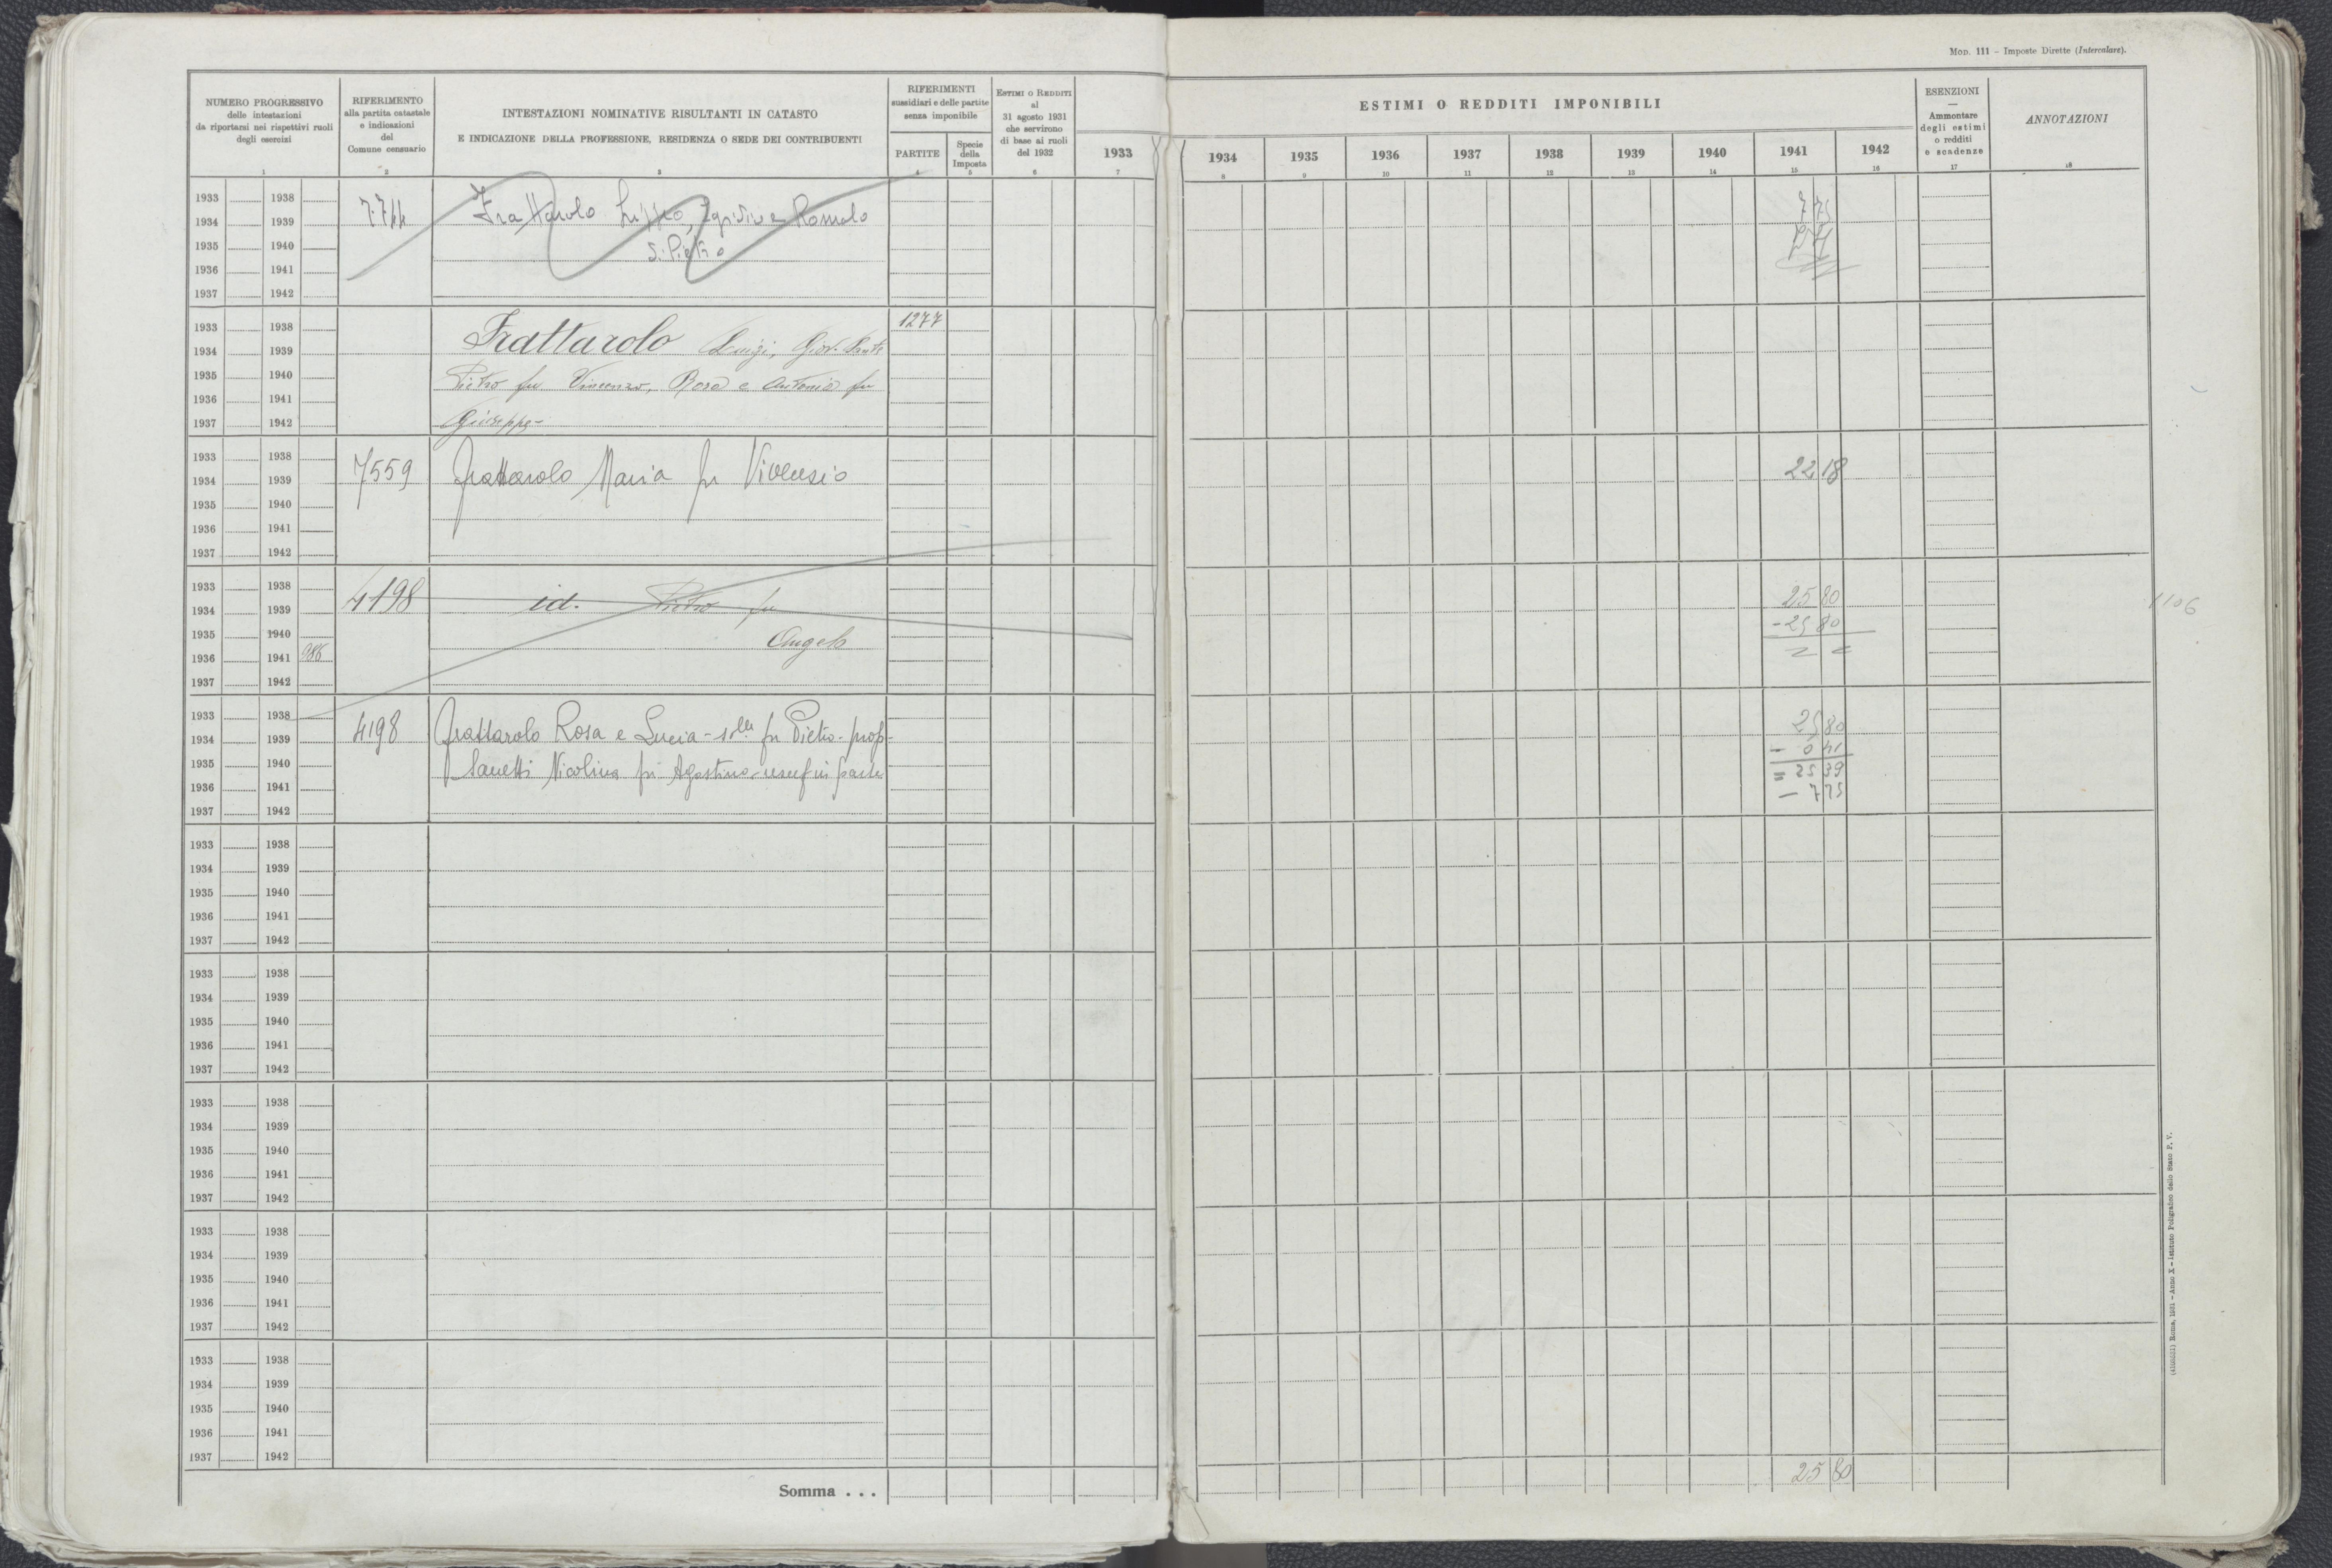 Mod. 111 – Imposte Dirette (Intercalare).
NUMERO PROGRESSIVO
delle intestazioni
da riportarsi nei rispettivi ruoli
degli esercizi
1
RIFERIMENTO
alla partita catastale
e indicazioni
del
Comune censuario
2
INTESTAZIONI NOMINATIVE RISULTANTI IN CATASTO
E INDICAZIONE DELLA PROFESSIONE, RESIDENZA O SEDE DEI CONTRIBUENTI
3
RIFERIMENTI
sussidiari e delle partite
senza imponibile
PARTITE
4
Specie
della
Imposta
5
Estimi o Redditi
al
31 agosto 1931
che servirono
di base ai ruoli
del 1932
6
ESTIMI O REDDITI IMPONIBILI
1933 1934 1935 1936 1937 1938 1939 1940 1941 1942
7 8 9 10 11 12 13 14 15 16
ESENZIONI
—
Ammontare
degli estimi
o redditi
e scadenze
17
ANNOTAZIONI
18
1933 1938
1934 1939 7744 Frattarolo Egidio e Romolo 7 75
1935 1940 Pietro
1936 1941
1937 1942
1933 1938 1277
1934 1939 Frattarolo Luigi, Giov. Sante
1935 1940 Pietro fu Vincenzo, Rosa e Antonia fu
1936 1941
1937 1942 Giuseppe
1933 1938
1934 1939 7559 Frattarolo Maria fu Vivenzio 22 18
1935 1940
1936 1941
1937 1942
1933 1938
1934 1939 4198 id. Pietro fu 25 80 1106
1935 1940 Angelo - 25 80
1936 1941 986
1937 1942
1933 1938 25 80
1934 1939 4198 Frattarolo Rosa e Lucia - s.lle fu Pietro - prop - 0 41
1935 1940 Nicolina fu Agostino - usuf in parte = 25 39
1936 1941 — 7 75
1937 1942
1933 1938
1934 1939
1935 1940
1936 1941
1937 1942
1933 1938
1934 1939
1935 1940
1936 1941
1937 1942
1933 1938
1934 1939
1935 1940
1936 1941
1937 1942
1933 1938
1934 1939
1935 1940
1936 1941
1937 1942
1933 1938
1934 1939
1935 1940
1936 1941
1937 1942
Somma . . . 25 80
Roma, 1931 – Anno X – Istituto Poligrafico dello Stato P. V.